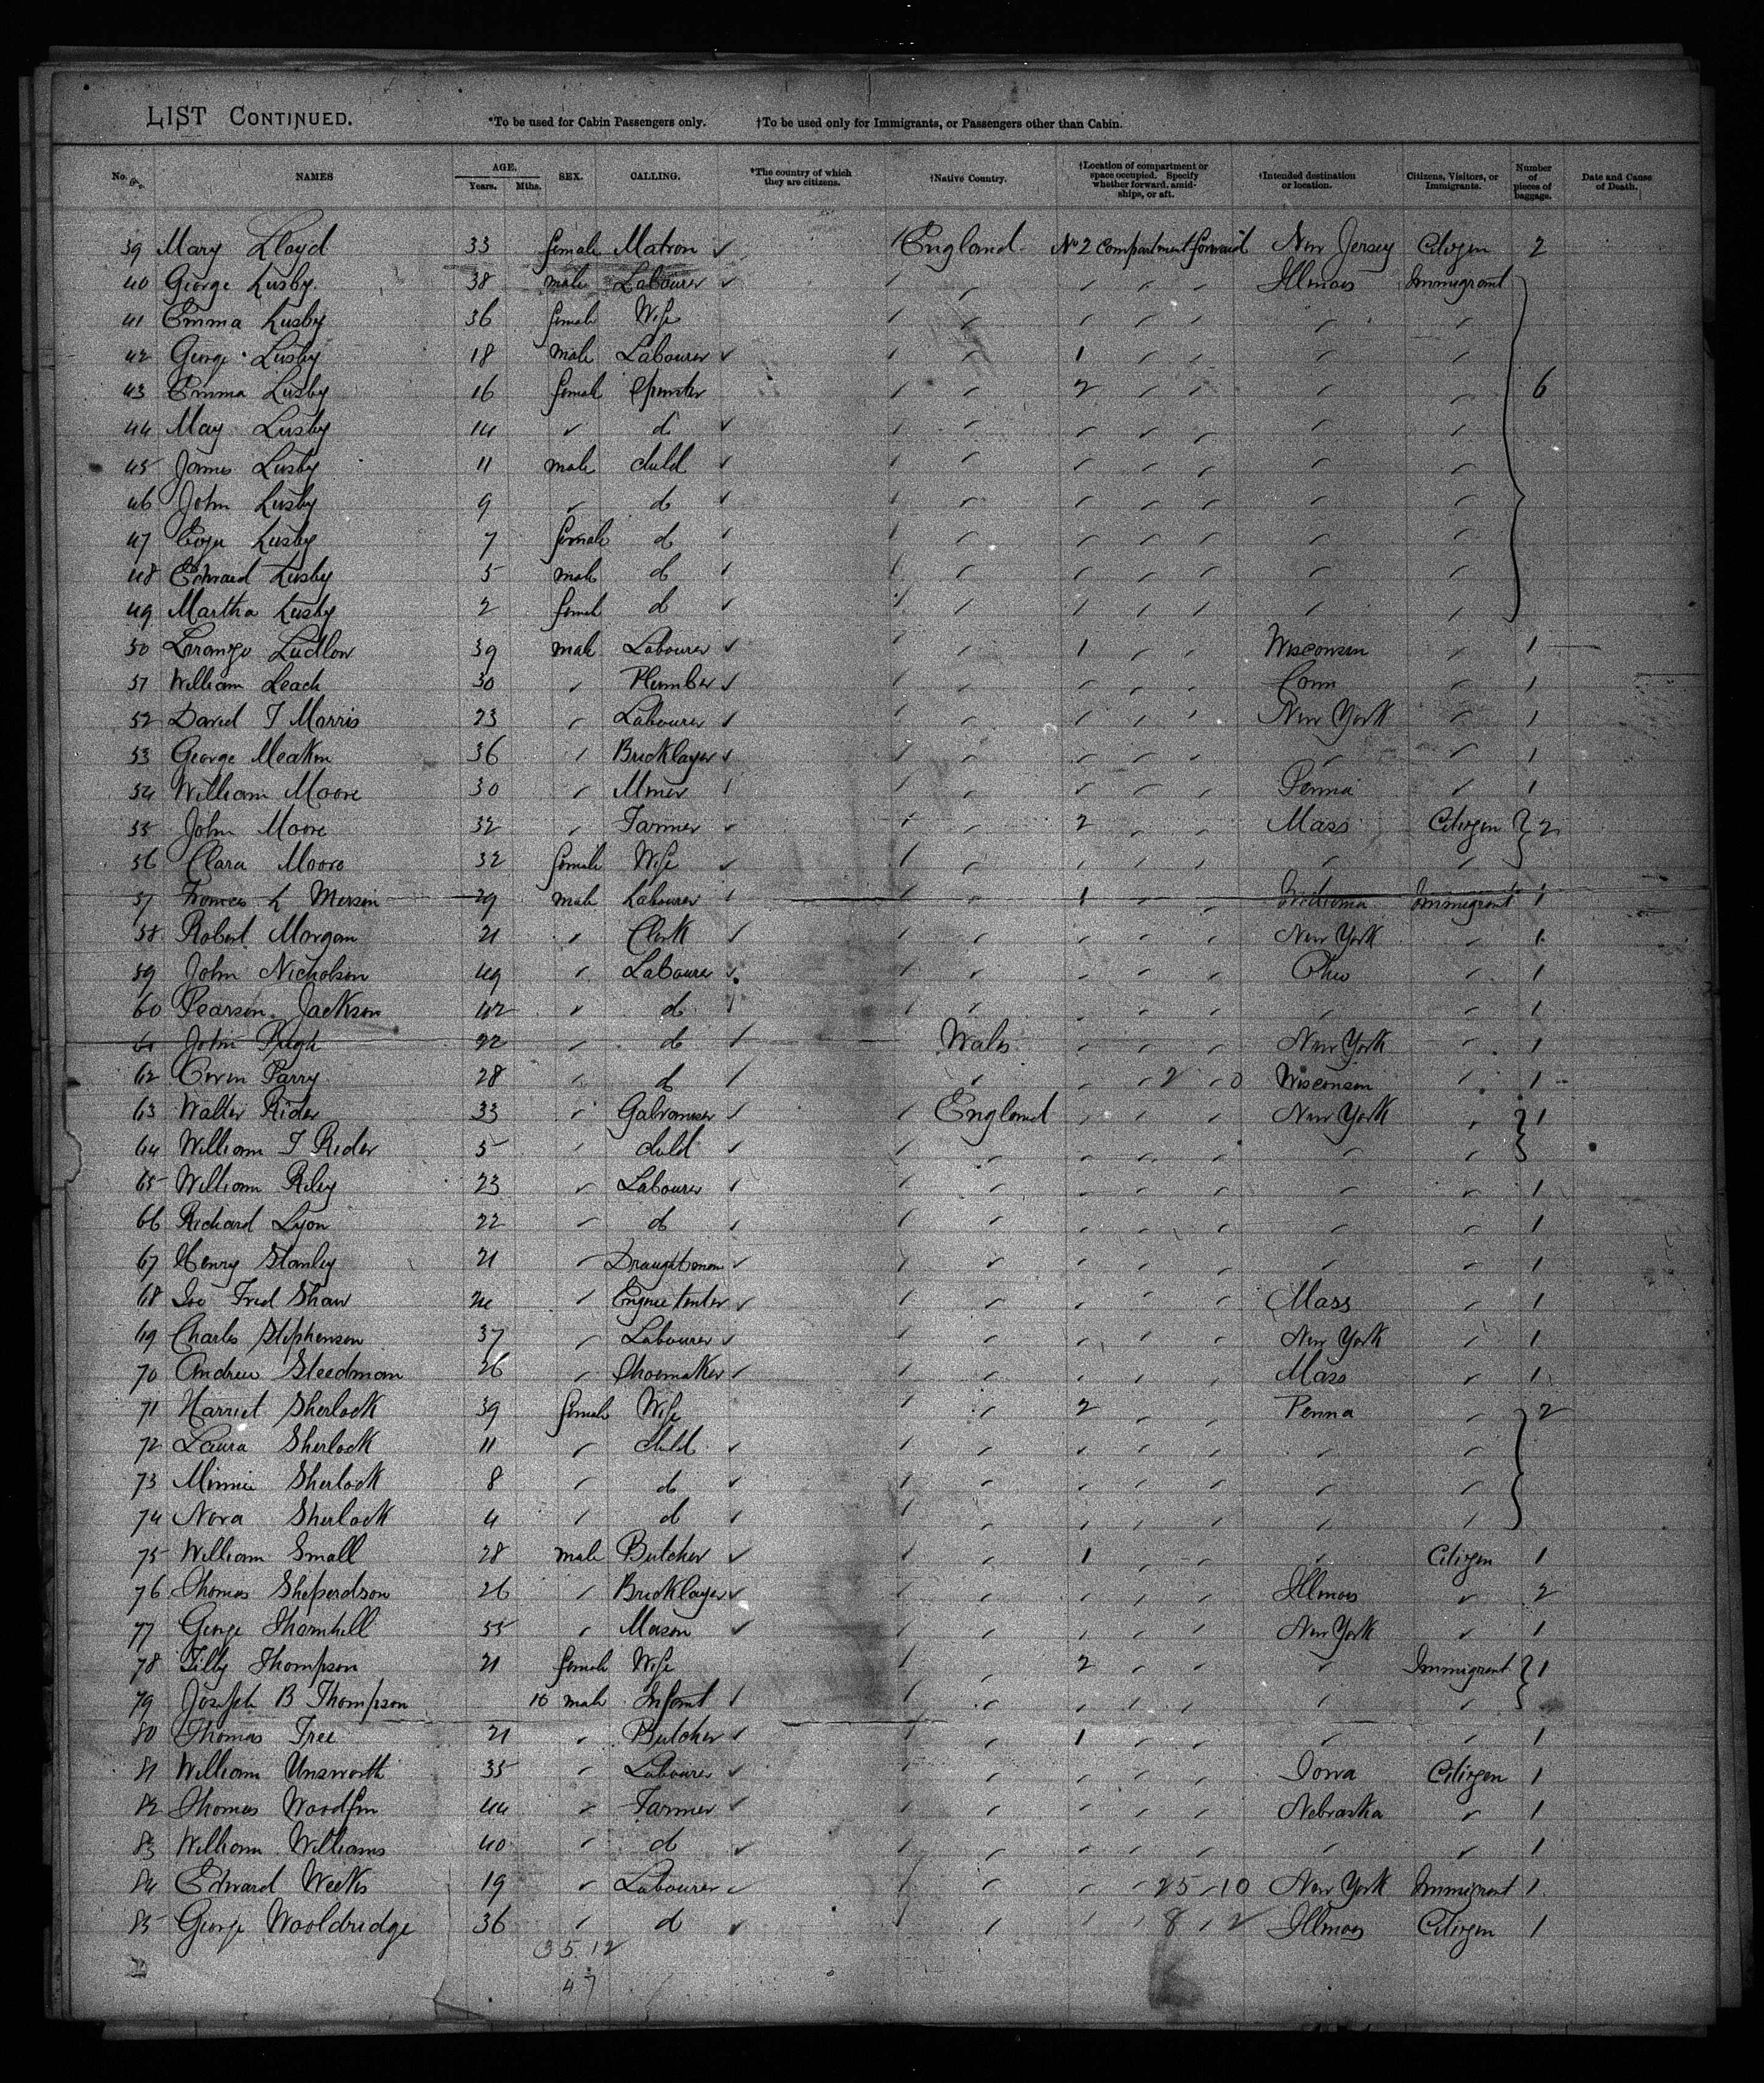 LIST CONTINUED. *To be used for Cabin Passengers only. †To be used only for Immigrants, or Passengers other than Cabin.
No. NAMES AGE. Years. Mths. SEX. CALLING. *The country of which they are citizens. †Native Country. †Location of compartment or space occupied. Specify whether forward, amidships, or aft. †Intended destination or location. Citizens, Visitors, or Immigrants. Number of pieces of baggage. Date and Cause of Death.
39 Mary Lloyd 33 female Matron ✓ England No 2 Compartment forward New Jersey Citizen 2
40 George Lusby 38 male Labourer ✓ Illinois Immigrant
41 Emma Lusby 36 female Wife
42 George Lusby 18 male Labourer ✓ 1
43 Emma Lusby 16 female Spinster 2 6
44 May Lusby 14 do ✓
45 James Lusby 11 male child ✓
46 John Lusby 9 do ✓
47 Lusby 7 female do
48 Edward Lusby 5 male do
49 Martha Lusby 2 female do ✓
50 Ludlow 39 male Labourer ✓ 1 Wisconsin 1
51 William Leach 30 Plumber ✓ Conn 1
52 David T Morris 23 Labourer ✓ New York 1
53 George Meakin 36 Bricklayer ✓ 1
54 William Moore 30 Miner Penna 1
55 John Moore 32 Farmer ✓ 2 Mass Citizen 2
56 Clara Moore 32 female Wife ✓
57 L 29 male Labourer 1 Indiana Immigrant 1
58 Robert Morgan 21 Clerk ✓ New York 1
59 John Nicholson 49 Labourer ✓ Ohio 1
60 Pearson Jackson 42 do 1
61 John Pugh 22 do Wales New York 1
62 Owen Parry 28 do 2 0 Wisconsin 1
63 Walter Rider 33 Galvaniser England New York 1
64 William T Rider 5 child ✓
65 William Riley 23 Labourer 1
66 Richard Lyon 22 do 1
67 Henry Stanley 21 Draughtsman ✓ 1
68 Fred Shaw 24 Engine tenter ✓ Mass 1
69 Charles Stephenson 37 Labourer ✓ New York 1
70 Andrew Steedman 26 Shoemaker ✓ Mass 1
71 Harriet Sherlock 39 female Wife 2 Penna 2
72 Laura Sherlock 11 child ✓
73 Minnie Sherlock 8 do ✓
74 Nora Sherlock 4 do ✓
75 William Small 28 male Butcher ✓ 1 Citizen 1
76 Thomas Sheperdson 26 Bricklayer ✓ Illinois 2
77 George Thornhill 55 Mason ✓ New York 1
78 Tilly Thompson 21 female Wife 2 Immigrant 1
79 Joseph B Thompson 10 male Infant
80 Thomas Tree 21 Butcher 1 1
81 William Unsworth 35 Labourer ✓ Iowa Citizen 1
82 Thomas Woodfin 44 Farmer ✓ Nebraska 1
83 William Williams 40 do ✓ 1
84 Edward Weeks 19 Labourer ✓ 25 10 New York Immigrant 1
85 George Wooldridge 36 do ✓ 8 2 Illinois Citizen 1
35 12
47